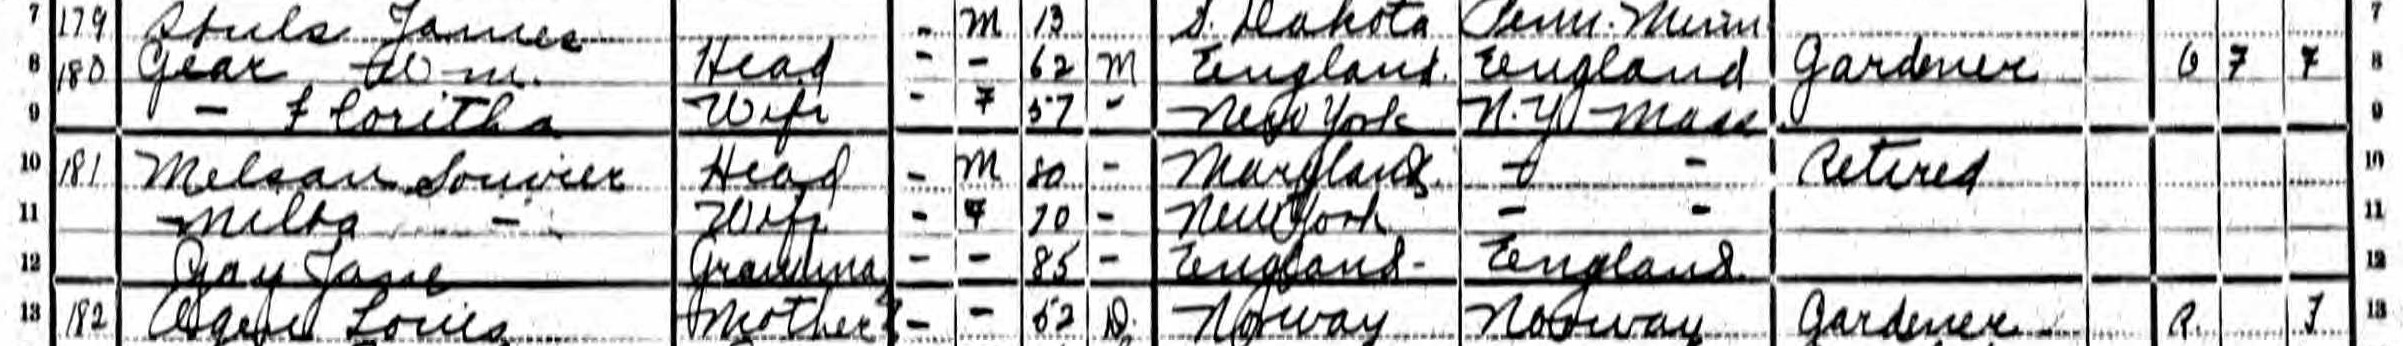 7 179 James - M 13 S. Dakota Penn. Minn 7
8 180 Gear Wm. Head - - 62 M England. England Gardener O 7 7 8
9 - Floritha Wife - F 57 - New York N.Y. Mass 9
10 181 Head - M 80 - Maryland - - Retired 10
11 - Wife - F 70 - New York - - 11
12 Gay Jane Grandma - - 85 - England - England 12
13 182 Louis Mother - - 52 D. Norway Norway Gardener R. 13